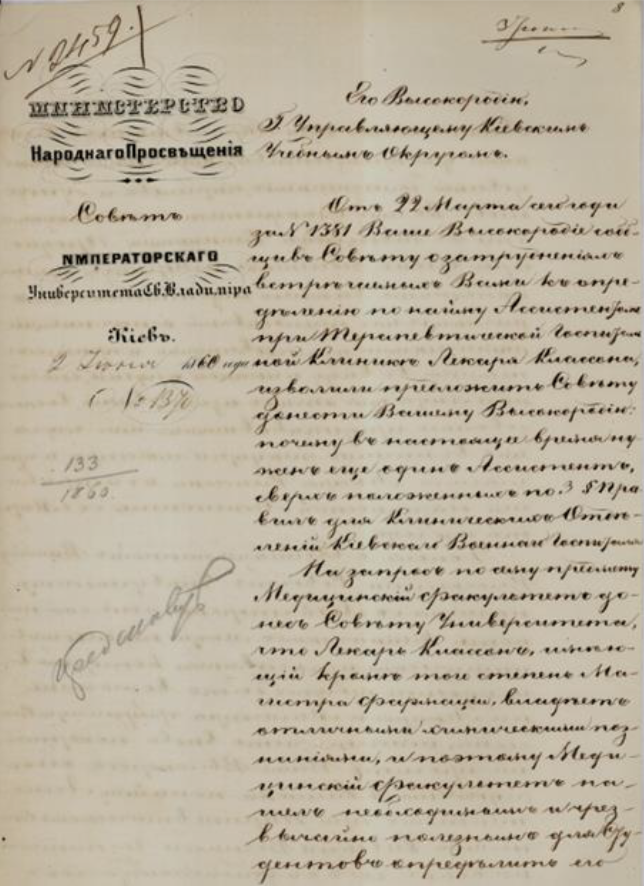 8
N 2459.
МИНИСТЕРСТВО
Народнаго Просвѣщенія
Совѣтъ
ИМПЕРАТОРСКАГО
Университета Св. Владиміра
Кіевъ.
2 Іюня 1860 года
№ 1370
133
1860.
Его Высокородію,
Г. Управляющему Кіевскимъ
Учебнымъ Округомъ.
Отъ 22 Марта сего года
за N 1381 Ваше Высокородіе сооб-
щивъ Совѣту о затрудненіяхъ
встрѣчаемыхъ Вами къ опре-
дѣленію по найму Ассистентомъ
при Терапевтической Госпиталь-
ной Клиникѣ Лекаря Классона,
изволили предложить Совѣту
донести Вашему Высокородію:
почему въ настоящее время ну-
женъ еще одинъ Ассистентъ,
сверхъ положенныхъ по 3 § Пра-
вилъ для Клиническихъ Отдѣ-
леній Кіевскаго Военнаго Госпиталя
На запросъ по сему предмету
Медицинскій факультетъ до-
несъ Совѣту Университета,
что Лекарь Классонъ, имѣю-
щій кромѣ того степень Ма-
гистра фармаціи, владѣетъ
отличными химическими поз-
наніями, и поэтому Меди-
цинскій факультетъ на-
шелъ необходимымъ и чрез-
вычайно полезнымъ для Сту-
дентовъ опредѣлить его